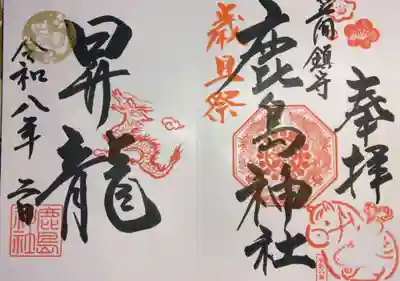 奉拝
鎮守
鹿島神社
歳旦祭
昇龍
令和八年
鹿島
神社